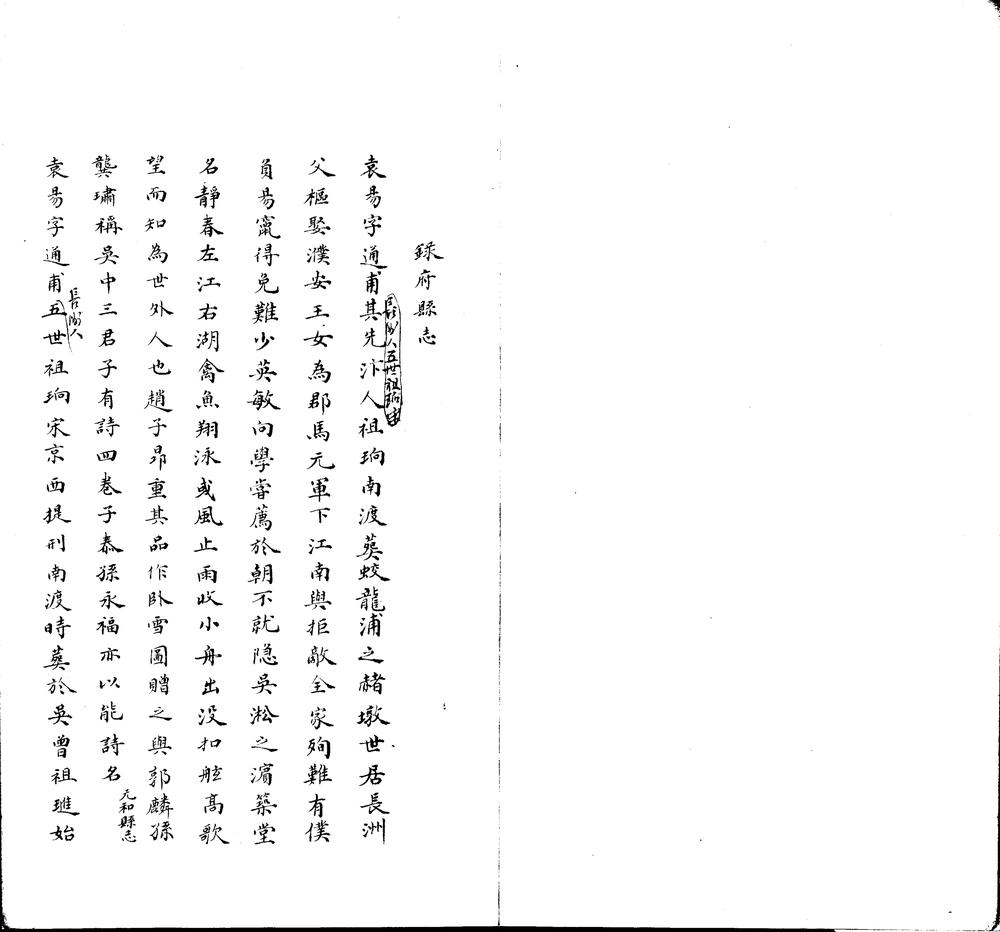 錄府縣志
袁易字通甫其先汴人祖珦南渡葬蛟龍浦之赭墩世居長洲
長洲人五世祖珦宋
父樞娶濮安王女為郡馬元軍下江南與拒敵全家殉難有僕
負易竄得免難少英敏向學嘗薦於朝不就隐吳淞之濵築堂
名靜春左江右湖禽魚翔泳或風止雨收小舟出没扣舷高歌
望而知為世外人也趙子昂重其品作卧雪圖贈之與郭麟孫
龔璛稱吳中三君子有詩四卷子泰孫永福亦以能詩名
元和縣志
袁易字通甫五世祖珦宋京西提刑南渡時葬於吳曾祖璡始
長洲人